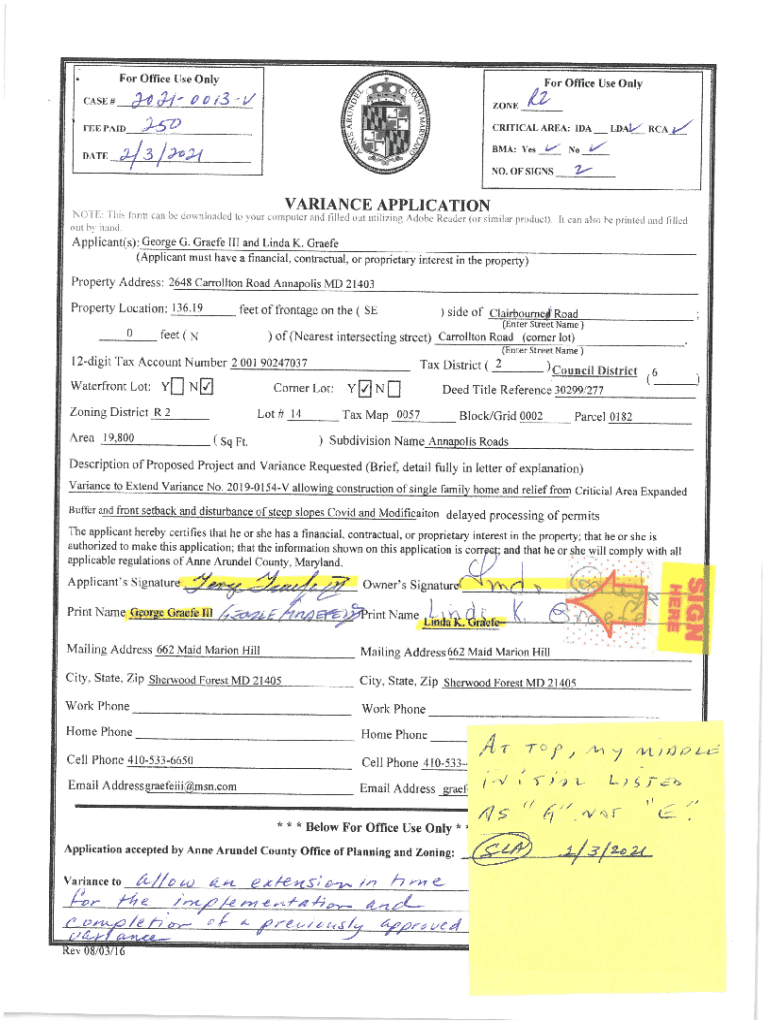 For Office Use Only
CASE # 2021-0013-V
FEE PAID 250
DATE 2/3/2021
ANNE ARUNDEL COUNTY MARYLAND
For Office Use Only
ZONE R2
CRITICAL AREA: IDA LDA ✓ RCA ✓
BMA: Yes ✓ No ✓
NO. OF SIGNS 2
VARIANCE APPLICATION
NOTE: This form can be downloaded to your computer and filled out utilizing Adobe Reader (or similar product). It can also be printed and filled
out by hand.
Applicant(s): George G. Graefe III and Linda K. Graefe
(Applicant must have a financial, contractual, or proprietary interest in the property)
Property Address: 2648 Carrollton Road Annapolis MD 21403
Property Location: 136.19 feet of frontage on the ( SE ) side of Clairbourne Road ;
(Enter Street Name )
0 feet ( N ) of (Nearest intersecting street) Carrollton Road (corner lot) .
(Enter Street Name )
12-digit Tax Account Number 2 001 90247037 Tax District ( 2 ) Council District ( 6 )
Waterfront Lot: Y☐ N☑ Corner Lot: Y☑ N☐ Deed Title Reference 30299/277
Zoning District R 2 Lot # 14 Tax Map 0057 Block/Grid 0002 Parcel 0182
Area 19,800 ( Sq Ft. ) Subdivision Name Annapolis Roads
Description of Proposed Project and Variance Requested (Brief, detail fully in letter of explanation)
Variance to Extend Variance No. 2019-0154-V allowing construction of single family home and relief from Criticial Area Expanded
Buffer and front setback and disturbance of steep slopes Covid and Modificaiton delayed processing of permits
The applicant hereby certifies that he or she has a financial, contractual, or proprietary interest in the property; that he or she is
authorized to make this application; that the information shown on this application is correct; and that he or she will comply with all
applicable regulations of Anne Arundel County, Maryland.
Applicant's Signature Owner's Signature
SIGN HERE
Print Name George Graefe III Print Name Linda K. Graefe
Mailing Address 662 Maid Marion Hill Mailing Address 662 Maid Marion Hill
City, State, Zip Sherwood Forest MD 21405 City, State, Zip Sherwood Forest MD 21405
Work Phone Work Phone
Home Phone Home Phone
Cell Phone 410-533-6650 Cell Phone 410-533-
Email Address graefeiii@msn.com Email Address graef
AT TOP, MY MIDDLE
INITIAL LISTED
AS "G" NOT "E".
2/3/2021
* * * Below For Office Use Only *
Application accepted by Anne Arundel County Office of Planning and Zoning:
Variance to allow an extension in time
for the implementation and
completion of a previously approved
variance
Rev 08/03/16